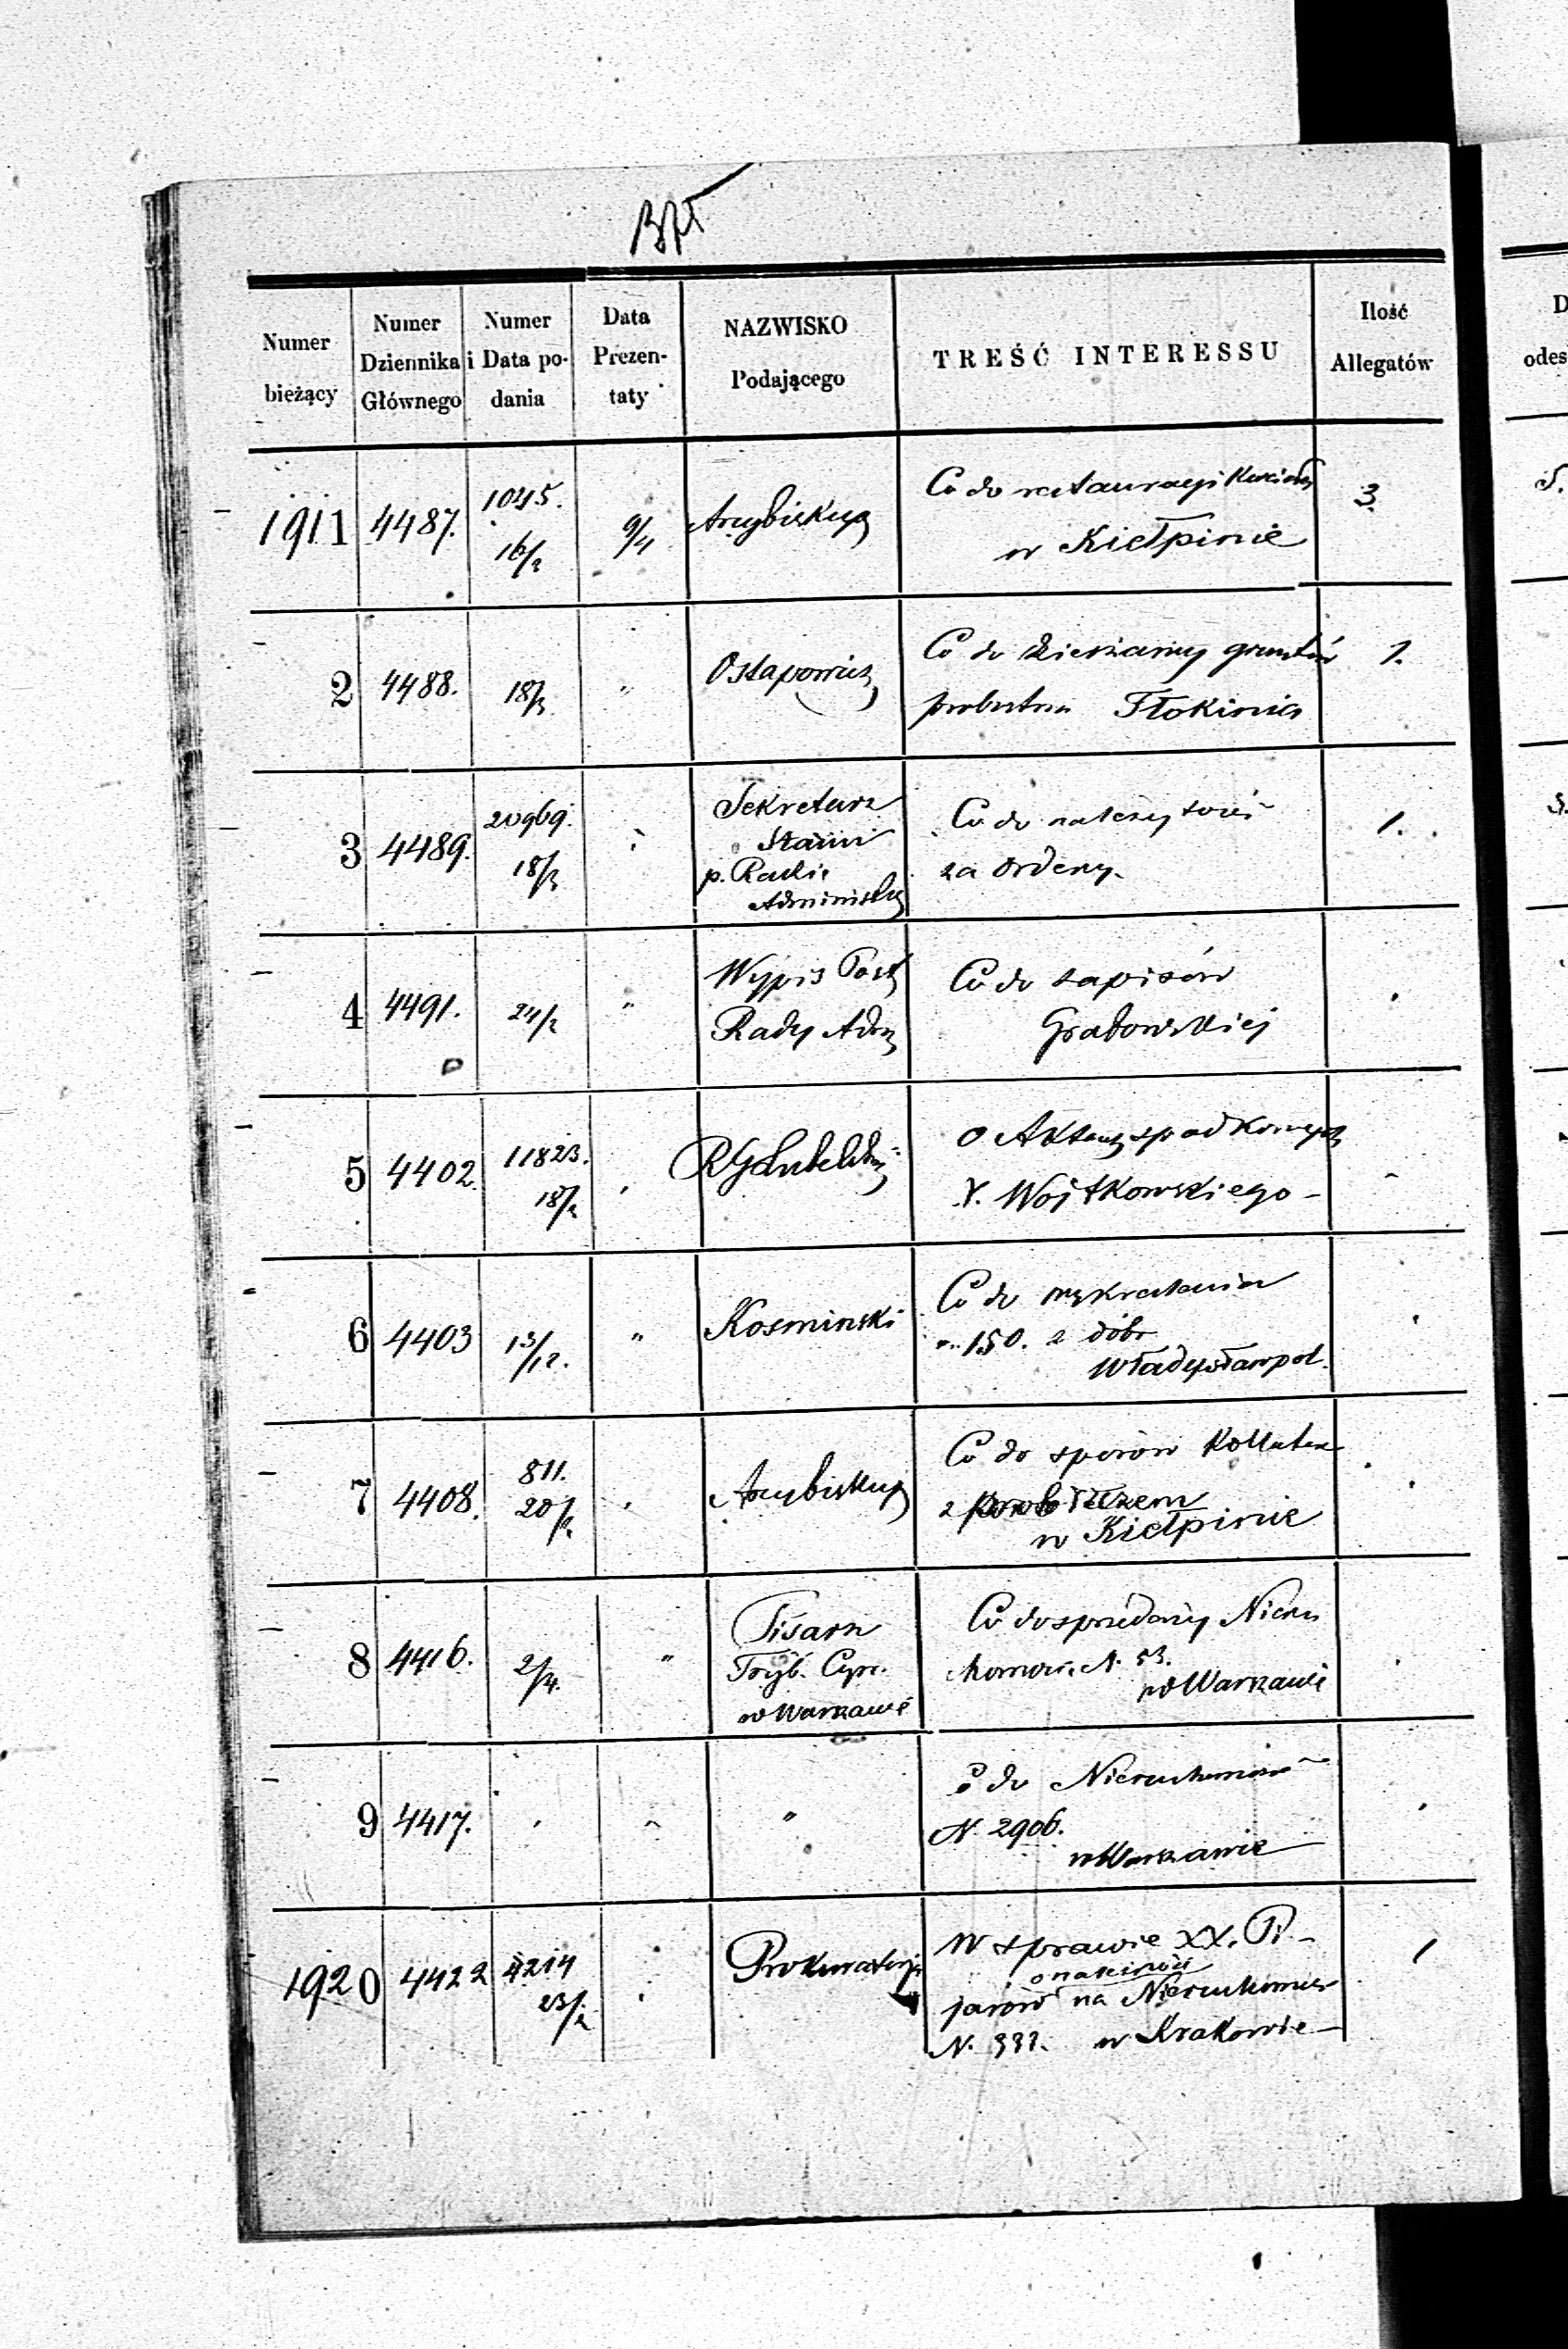 Numer bieżący
Numer Dziennika Głównego
Numer i Data podania
Data Prezentaty
NAZWISKO Podającego
TREŚĆ INTERESSU
Ilość Allegatów
1911 4487. 1045. 16/2 9/4 Arcybiskup
Co do restauracyi Kościoła
w Kiełpinie
3
2 4488. 18/3 " Ostapowicz
Co do dzierżawy gruntów
probostwa Tłokinia
1.
3 4489. 20969. 18/3
Sekretarz
Stanu
p. Radzie
Administr
Co do należytości
za Ordery.
1.
4 4491. 24/2 "
Wypis Posł
Rady Adm
Co do zapisów
Grabowskiej
5 4402. 11823. 18/2 RGLubelski
O Aktach spadkowych
X. Wojtkowskiego
6 4403 13/12. " Kosminski
Co do
150. z dóbr
Władysławpol.
7 4408. 811. 20/2 Arcybiskup
Co do sporów Kollatora
z Proboszczem
w Kiełpinie
8 4416. 2/4. "
Pisarz
Tryb. Cyw.
w Warszawie
Co do sprzedaży Nieru
chomości N. 53.
w Warszawie
9 4417. "
Co do Nieruchomości
N. 2906.
w Warszawie
1920 4422 4214 23/2 Prokuratorja
W sprawie XX. Pi-
jarów na Nieruchomość
N. 332. w Krakowie
1